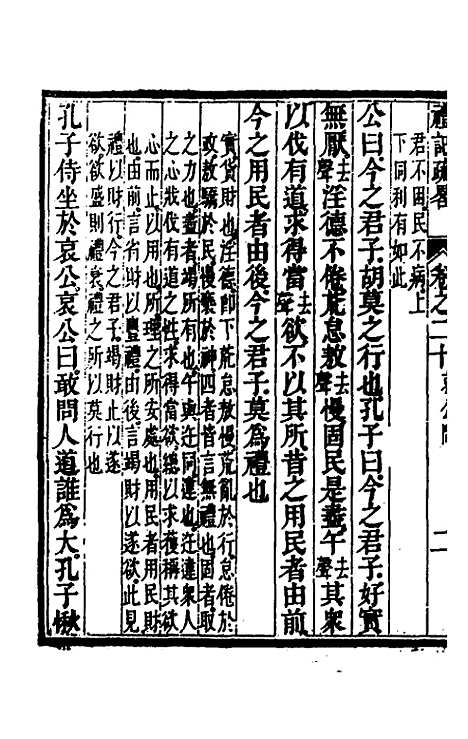 禮記疏畧 卷之二十 哀公問 二
君不困民不病上
下同利有如此
公曰今之君子胡莫之行也孔子曰今之君子好實
無厭去聲淫德不倦荒怠敖去聲慢固民是盡午去聲其衆
以伐有道求得當去聲欲不以其所昔之用民者由前
今之用民者由後今之君子莫為禮也
實貨財也淫德即下荒怠敖慢荒亂於行怠倦於
政敖驕於民慢䙝於神四者皆言無禮也固者取
之力也盡者竭所有也午與迕同違也迕違衆人
之心戕伐有道之性求得當欲總以求獲稱其欲
心而止以用也所理之所安處也用民者用民財
也由前言省財以豐禮由後言竭財以遂欲此見
禮以財行今之君子竭財止以遂
欲欲盛則禮衰禮之所以莫行也
孔子侍坐於哀公哀公曰敢問人道誰為大孔子愀